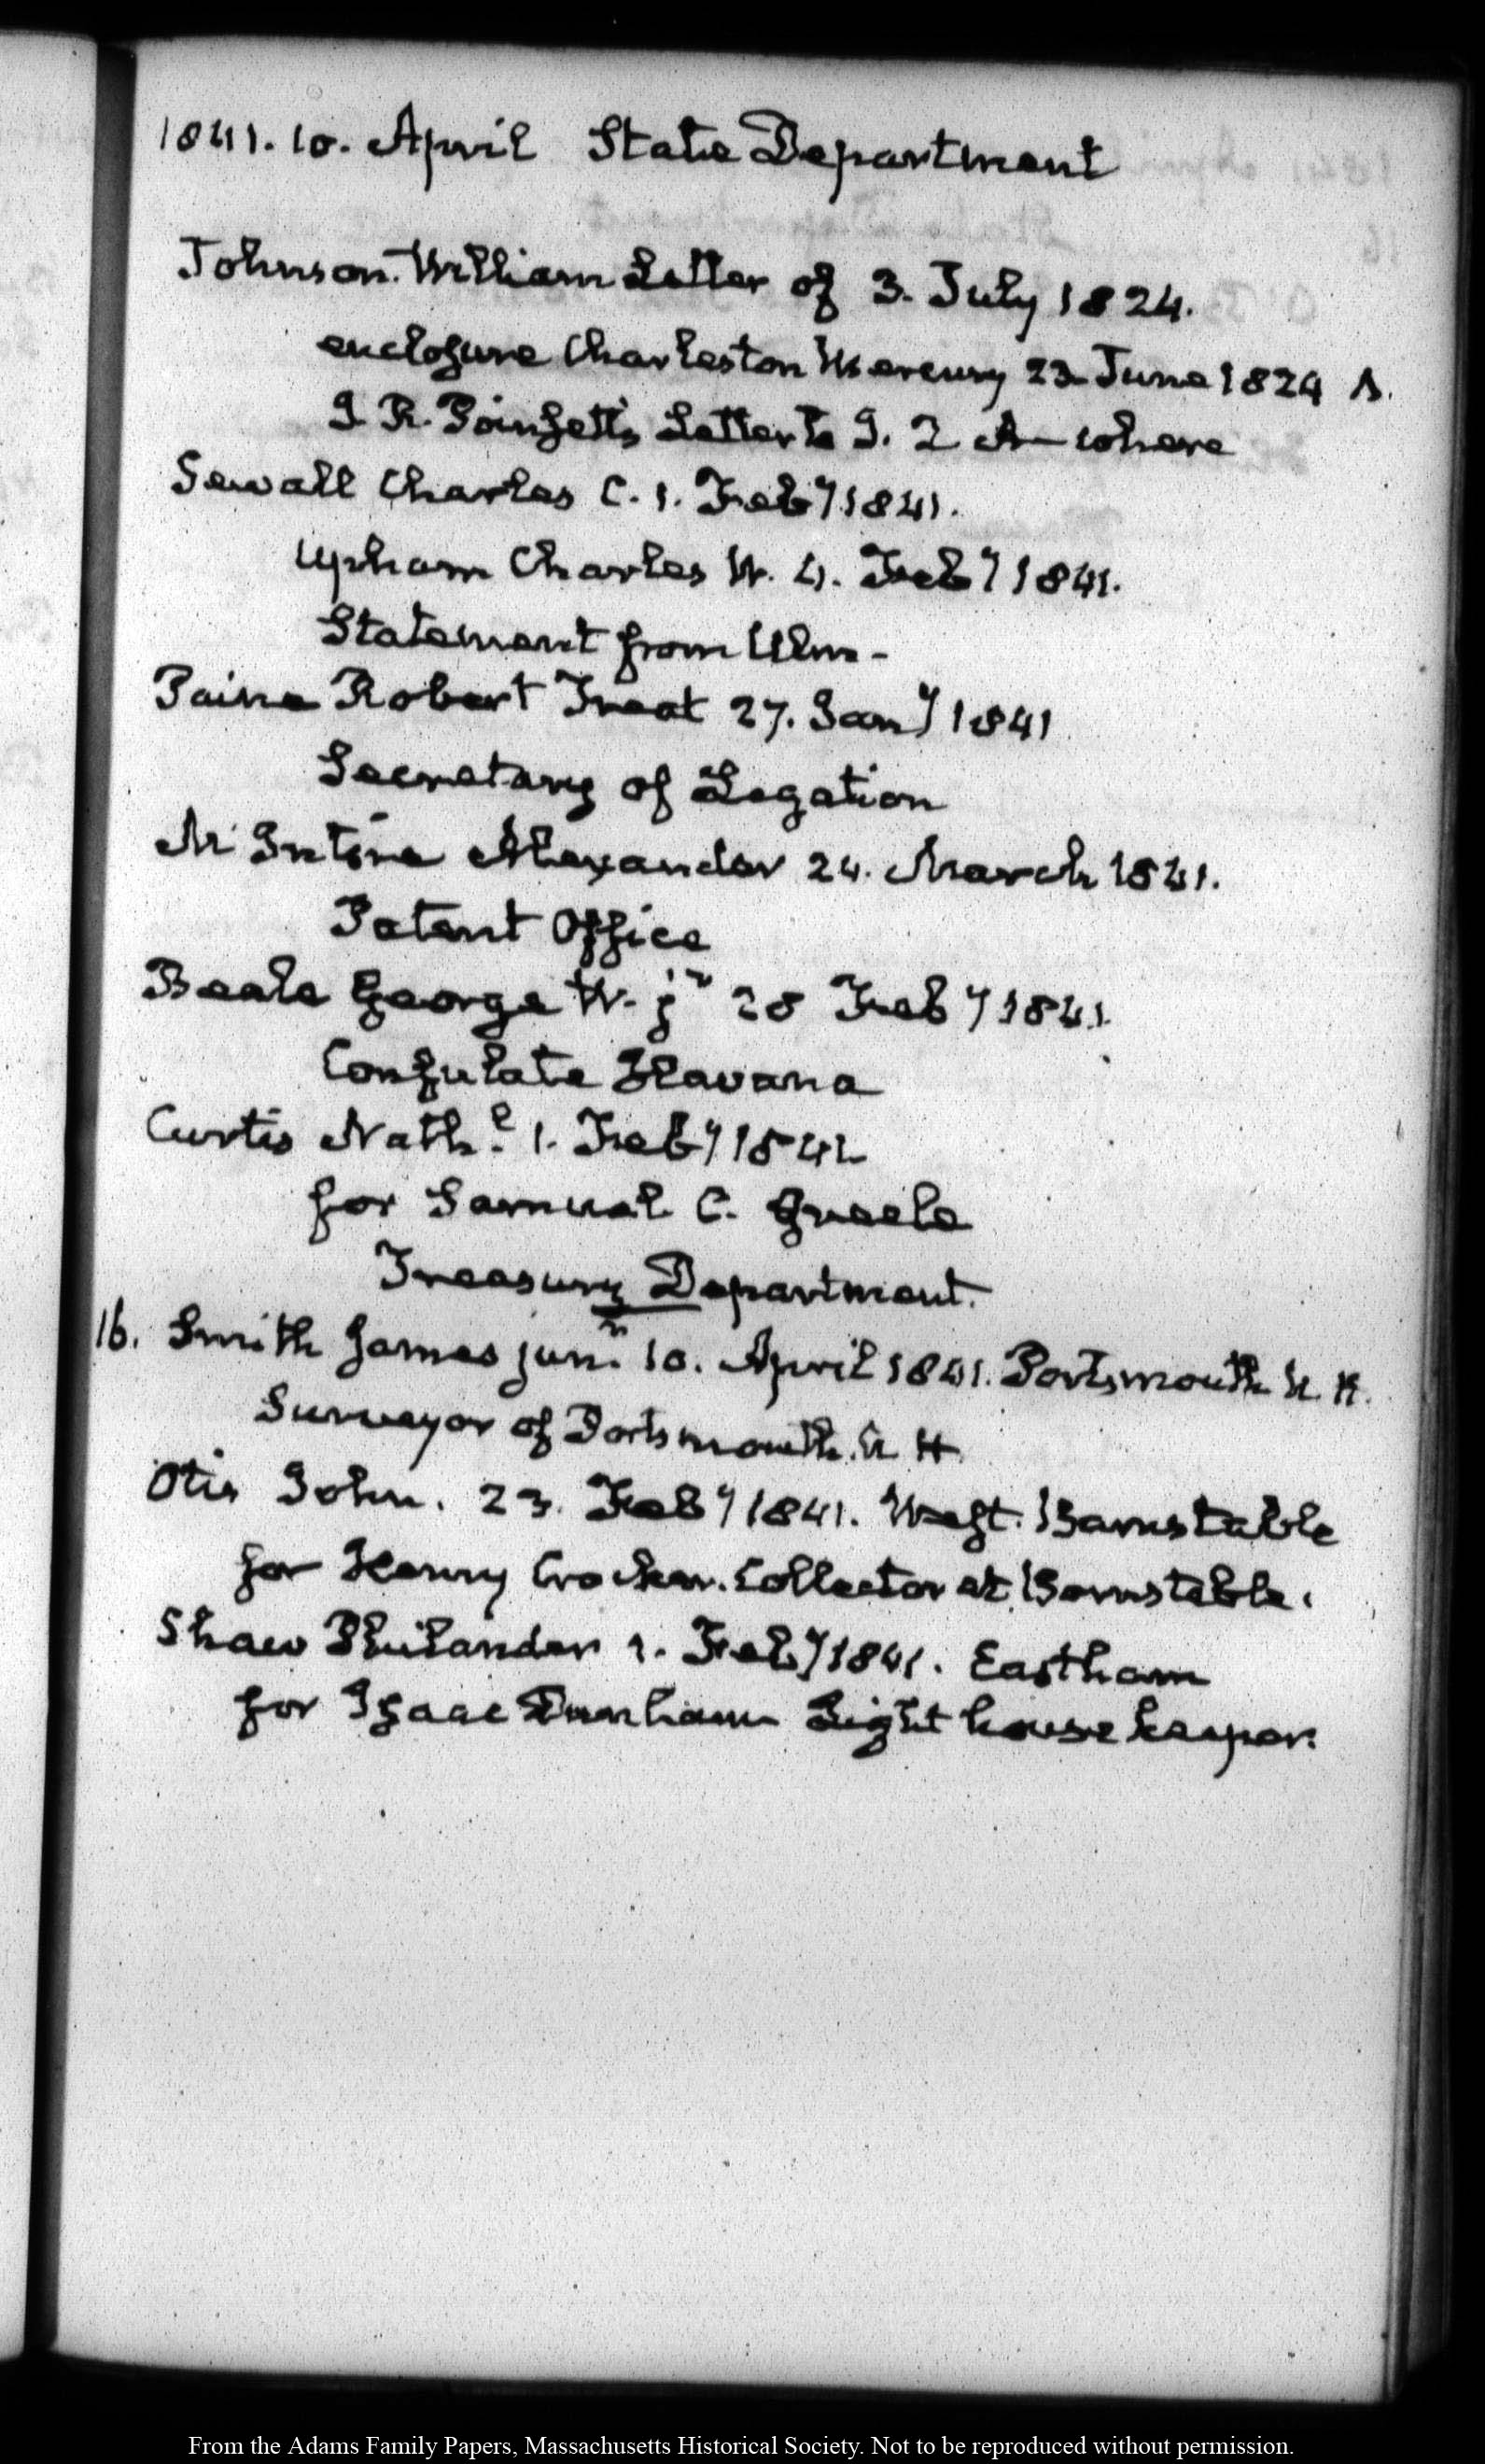 1841. 10. April State Department
Johnson. William Letter of 3. July 1824.
enclosure Charleston Mercury 23 June 1824 A.
J. R. Poinsett's Letter to J. Q A— where
Sewall Charles C. 1. Feby 1841.
Upham Charles W. 4. Feby 1841.
Statement from Ulm-
Paine Robert Treat 27. Jany 1841
Secretary of Legation
McIntire Alexander 24. March 1841.
Patent Office
Beale George W. jr 28 Feby 1841.
Consulate Havana
Curtis Nathl 1. Feby 1841
for Samuel C. Greele
Treasury Department.
16. Smith James junr 10. April 1841. Portsmouth N. H.
Surveyor of Portsmouth. N H
Otis John. 23. Feby 1841. West. Barnstable
for Henry Crocker. Collector at Barnstable.
Shaw Philander 1. Feby 1841. Eastham
for Isaac Dunham Light house keeper.
From the Adams Family Papers, Massachusetts Historical Society. Not to be reproduced without permission.